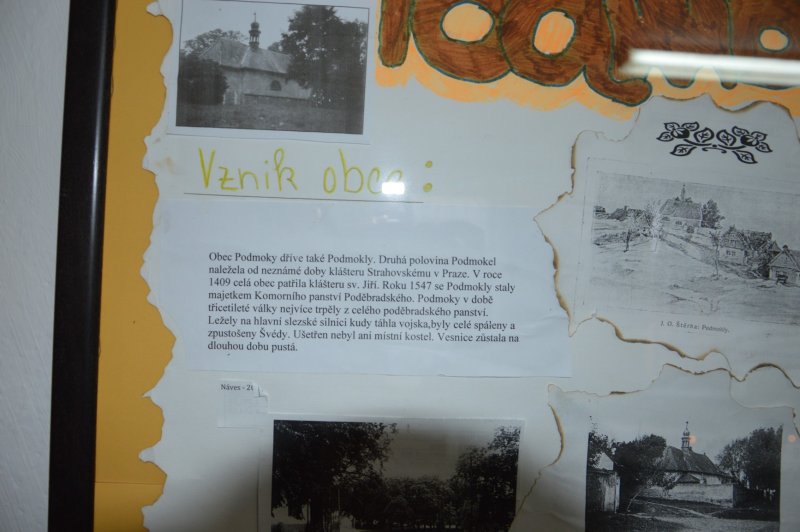 Vznik obce:
Obec Podmoky dříve také Podmokly. Druhá polovina Podmokel
naležela od neznámé doby klášteru Strahovskému v Praze. V roce
1409 celá obec patřila klášteru sv. Jiří. Roku 1547 se Podmokly staly
majetkem Komorního panství Poděbradského. Podmoky v době
třicetileté války nejvíce trpěly z celého poděbradského panství.
Ležely na hlavní slezské silnici kudy táhla vojska,byly celé spáleny a
zpustošeny Švédy. Ušetřen nebyl ani místní kostel. Vesnice zůstala na
dlouhou dobu pustá.
J. O. Štěrba: Podmokly.
Náves -